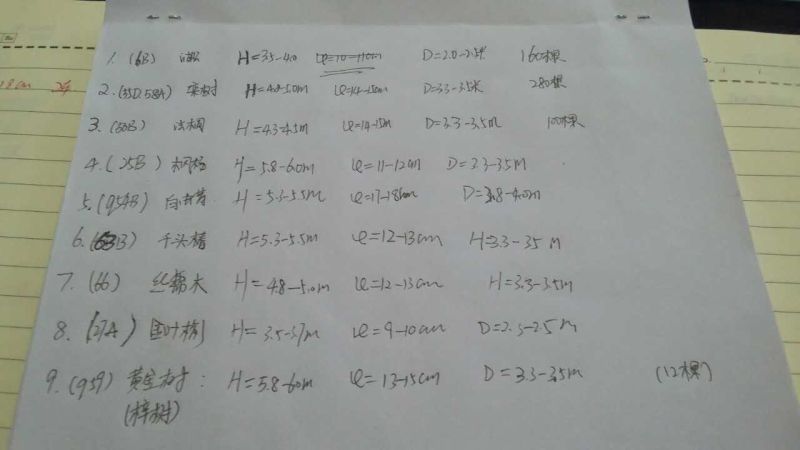 18cm
1. (6B) H=3.5-4.0 φ=10-11cm D=2.0-2.5米 160棵
2. (35D.58A) 栾树 H=4.8-5.0m φ=14-15cm D=3.3-3.5米 280棵
3. (30B) 法桐 H=4.3-4.5m φ=14-15m D=3.3-3.5m 100棵
4. (25B) H=5.8-6.0m φ=11-12cm D=3.3-3.5M
5. (954B) 白 H=5.3-5.5m φ=17-18cm D=3.8-4.0m
6. (63B) 千头椿 H=5.3-5.5M φ=12-13cm H=3.3-3.5M
7. (66) 丝棉木 H=4.8-5.0m φ=12-13cm H=3.3-3.5m
8. (27A) H=3.5-3.7m φ=9-10cm D=2.3-2.5m
9. (959) 黄金树: H=5.8-6.0m φ=13-15cm D=3.3-3.5m (12棵)
(梓树)